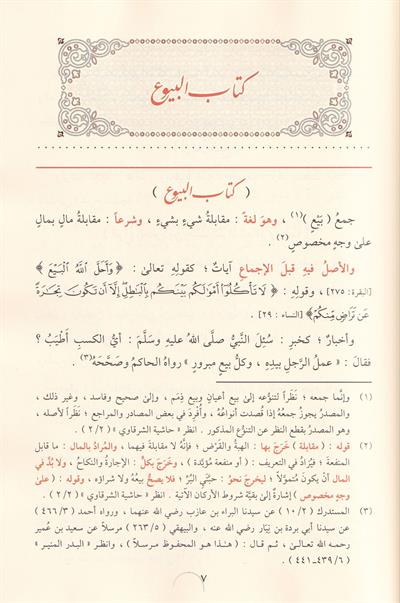 كتاب البيوع
( كتاب البيوع )
جمعُ ( بَيْعٍ )(١) ، وهوَ لغةً : مقابلةُ شيءٍ بشيءٍ ، وشرعاً : مقابلةُ مالٍ بمالٍ
علىٰ وجهٍ مخصوصٍ(٢) .
والأصلُ فيهِ قبلَ الإجماعِ آياتٌ ؛ كقولِهِ تعالىٰ : ﴿ وَأَحَلَّ ٱللَّهُ ٱلْبَيْعَ ﴾
[البقرة : ٢٧٥] ، وقولِهِ : ﴿ لَا تَأْكُلُوٓا۟ أَمْوَٰلَكُم بَيْنَكُم بِٱلْبَٰطِلِ إِلَّآ أَن تَكُونَ تِجَٰرَةً
عَن تَرَاضٍ مِّنكُمْ ﴾ [النساء : ٢٩] .
وأخبارٌ ؛ كخبرِ : سُئِلَ النبيُّ صلَّى اللهُ عليهِ وسلَّمَ : أيُّ الكسبِ أطْيَبُ ؟
فقالَ : « عملُ الرَّجلِ بيدِهِ ، وكلُّ بيعٍ مبرورٍ » رواهُ الحاكمُ وصَحَّحَهُ(٣) .
(١) وإنَّما جمعه ؛ نَظَراً لتنوُّعه إلىٰ بيع أعيانٍ وبيعِ ذِمَمٍ ، وإلىٰ صحيح وفاسد ، وغير ذلك ،
والمصدرُ يجوز جمعُهُ إذا قُصدت أنواعُهُ ، وأُفْرِدَ في بعض المصادر والمراجع ؛ نَظَراً لأصله ،
وهو المصدرُ بقطع النظر عن التنوُّع المذكور . انظر « حاشية الشرقاوي » ( ٢/٢ ) .
(٢) قوله : ( مقابلة ) خَرَجَ بها : الهبةُ والقَرْضُ ؛ فإنَّهُ لا مقابلةَ فيهما ، والمُرادُ بالمال : ما قابل
المنفعةَ ؛ فيُزادُ في التعريف : ( أو منفعة مؤبَّدة ) ، وخَرَجَ بكلٍّ : الإجارةُ والنكاحُ ، ولا بُدَّ في
المال أنْ يكونَ مُتموَّلاً ؛ ليخرجَ نحوُ : حبَّتَي البُرِّ ؛ فلا يصحُّ بيعُهُ ولا شراؤه ، وقوله : ( علىٰ
وجهٍ مخصوص ) إشارةٌ إلىٰ بقيَّة شروط الأركان الآتية . انظر « حاشية الشرقاوي » ( ٢/٢ ) .
(٣) المستدرك ( ١٠/٢ ) عن سيدنا البراء بن عازب رضي الله عنهما ، ورواه أحمد ( ٤٦٦/٣ )
عن سيدنا أبي بردة بن نِيَار رضي الله عنه ، والبيهقي ( ٢٦٣/٥ ) مرسلاً عن سعيد بن عُمير
رحمه الله تعالىٰ ، ثم قال : ( هٰذا هو المحفوظ مرسلاً ) ، وانظر « البدر المنير »
( ٤٣٩/٦-٤٤١ ) .
٧